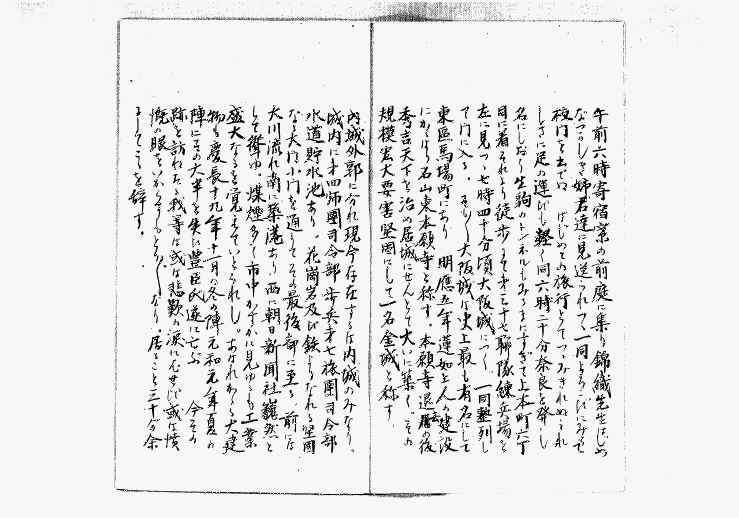 午前六時寄宿寮の前庭に集り錦織先生はじめ
なつかしき姉君達に見送られつゝ一同よろこびにみちて
校門を出でぬ はじめての旅行とてつゝみきれぬうれ
しさに足の運びも軽く同六時二十分奈良を発し
名にしおふ生駒のトンネルもみるまにすぎて上本町六丁
目に着それより徒歩にて第三十七聯隊練兵場を
左に見つゝ七時四十分頃大阪城につく、一同整列し
て門に入る。そも〳〵大阪城は史上最も有名にして
東区馬場町にあり 明應五年蓮如上人の建設
にかゝり石山東本願寺と称す。本願寺退隠の後
秀吉天下を治め居城にせんとて大いに築く。その
規模宏大要害堅固にして一名金城と称す。
内城外郭に分れ現今存在するは内城のみなり。
城内に第四師團司令部歩兵第七旅團司令部
水道貯水池あり。花崗岩及び鉄よりなれる堅固
なる大門小門を通りてその最後部に至る。前には
大川流れ南に築港あり西に朝日新聞社巍然と
して聳ゆ、煤煙多く市中かすかに見ゆるも工業
盛大なるを覚えていとうれし。あはれかゝる大建
物も慶長十九年十一月の冬の陣元和元年夏の
陣にその大半を失ひ豊臣氏遂に亡ぶ 今その
跡を訪ねたる我等は或は悲歎の涙にむせび或は憤
慨の眼をいからすもことわりなり。居ること三十分余
にしてこゝを辞す。